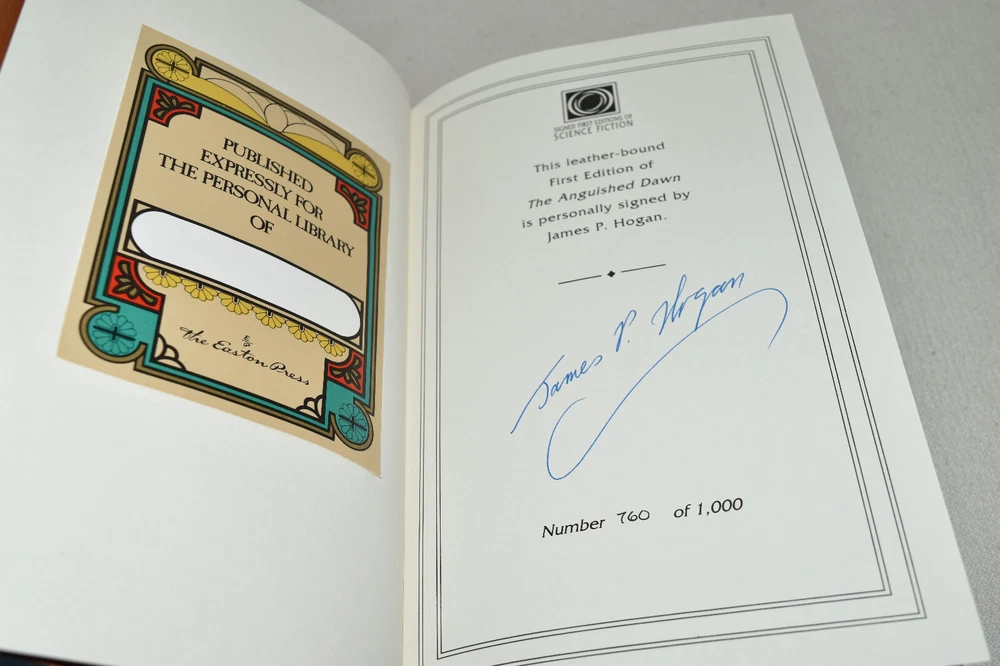 PUBLISHED
EXPRESSLY FOR
THE PERSONAL LIBRARY
OF
the Easton Press
SIGNED FIRST EDITIONS OF
SCIENCE FICTION
This leather-bound
First Edition of
The Anguished Dawn
is personally signed by
James P. Hogan.
James P Hogan
Number 760 of 1,000